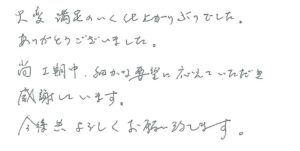 大変 満足のいく仕上がりぶりでした。
ありがとうございました。
尚 工期中、細かな要望に応えていただき
感謝しています。
今後共 よろしくお願い致します。